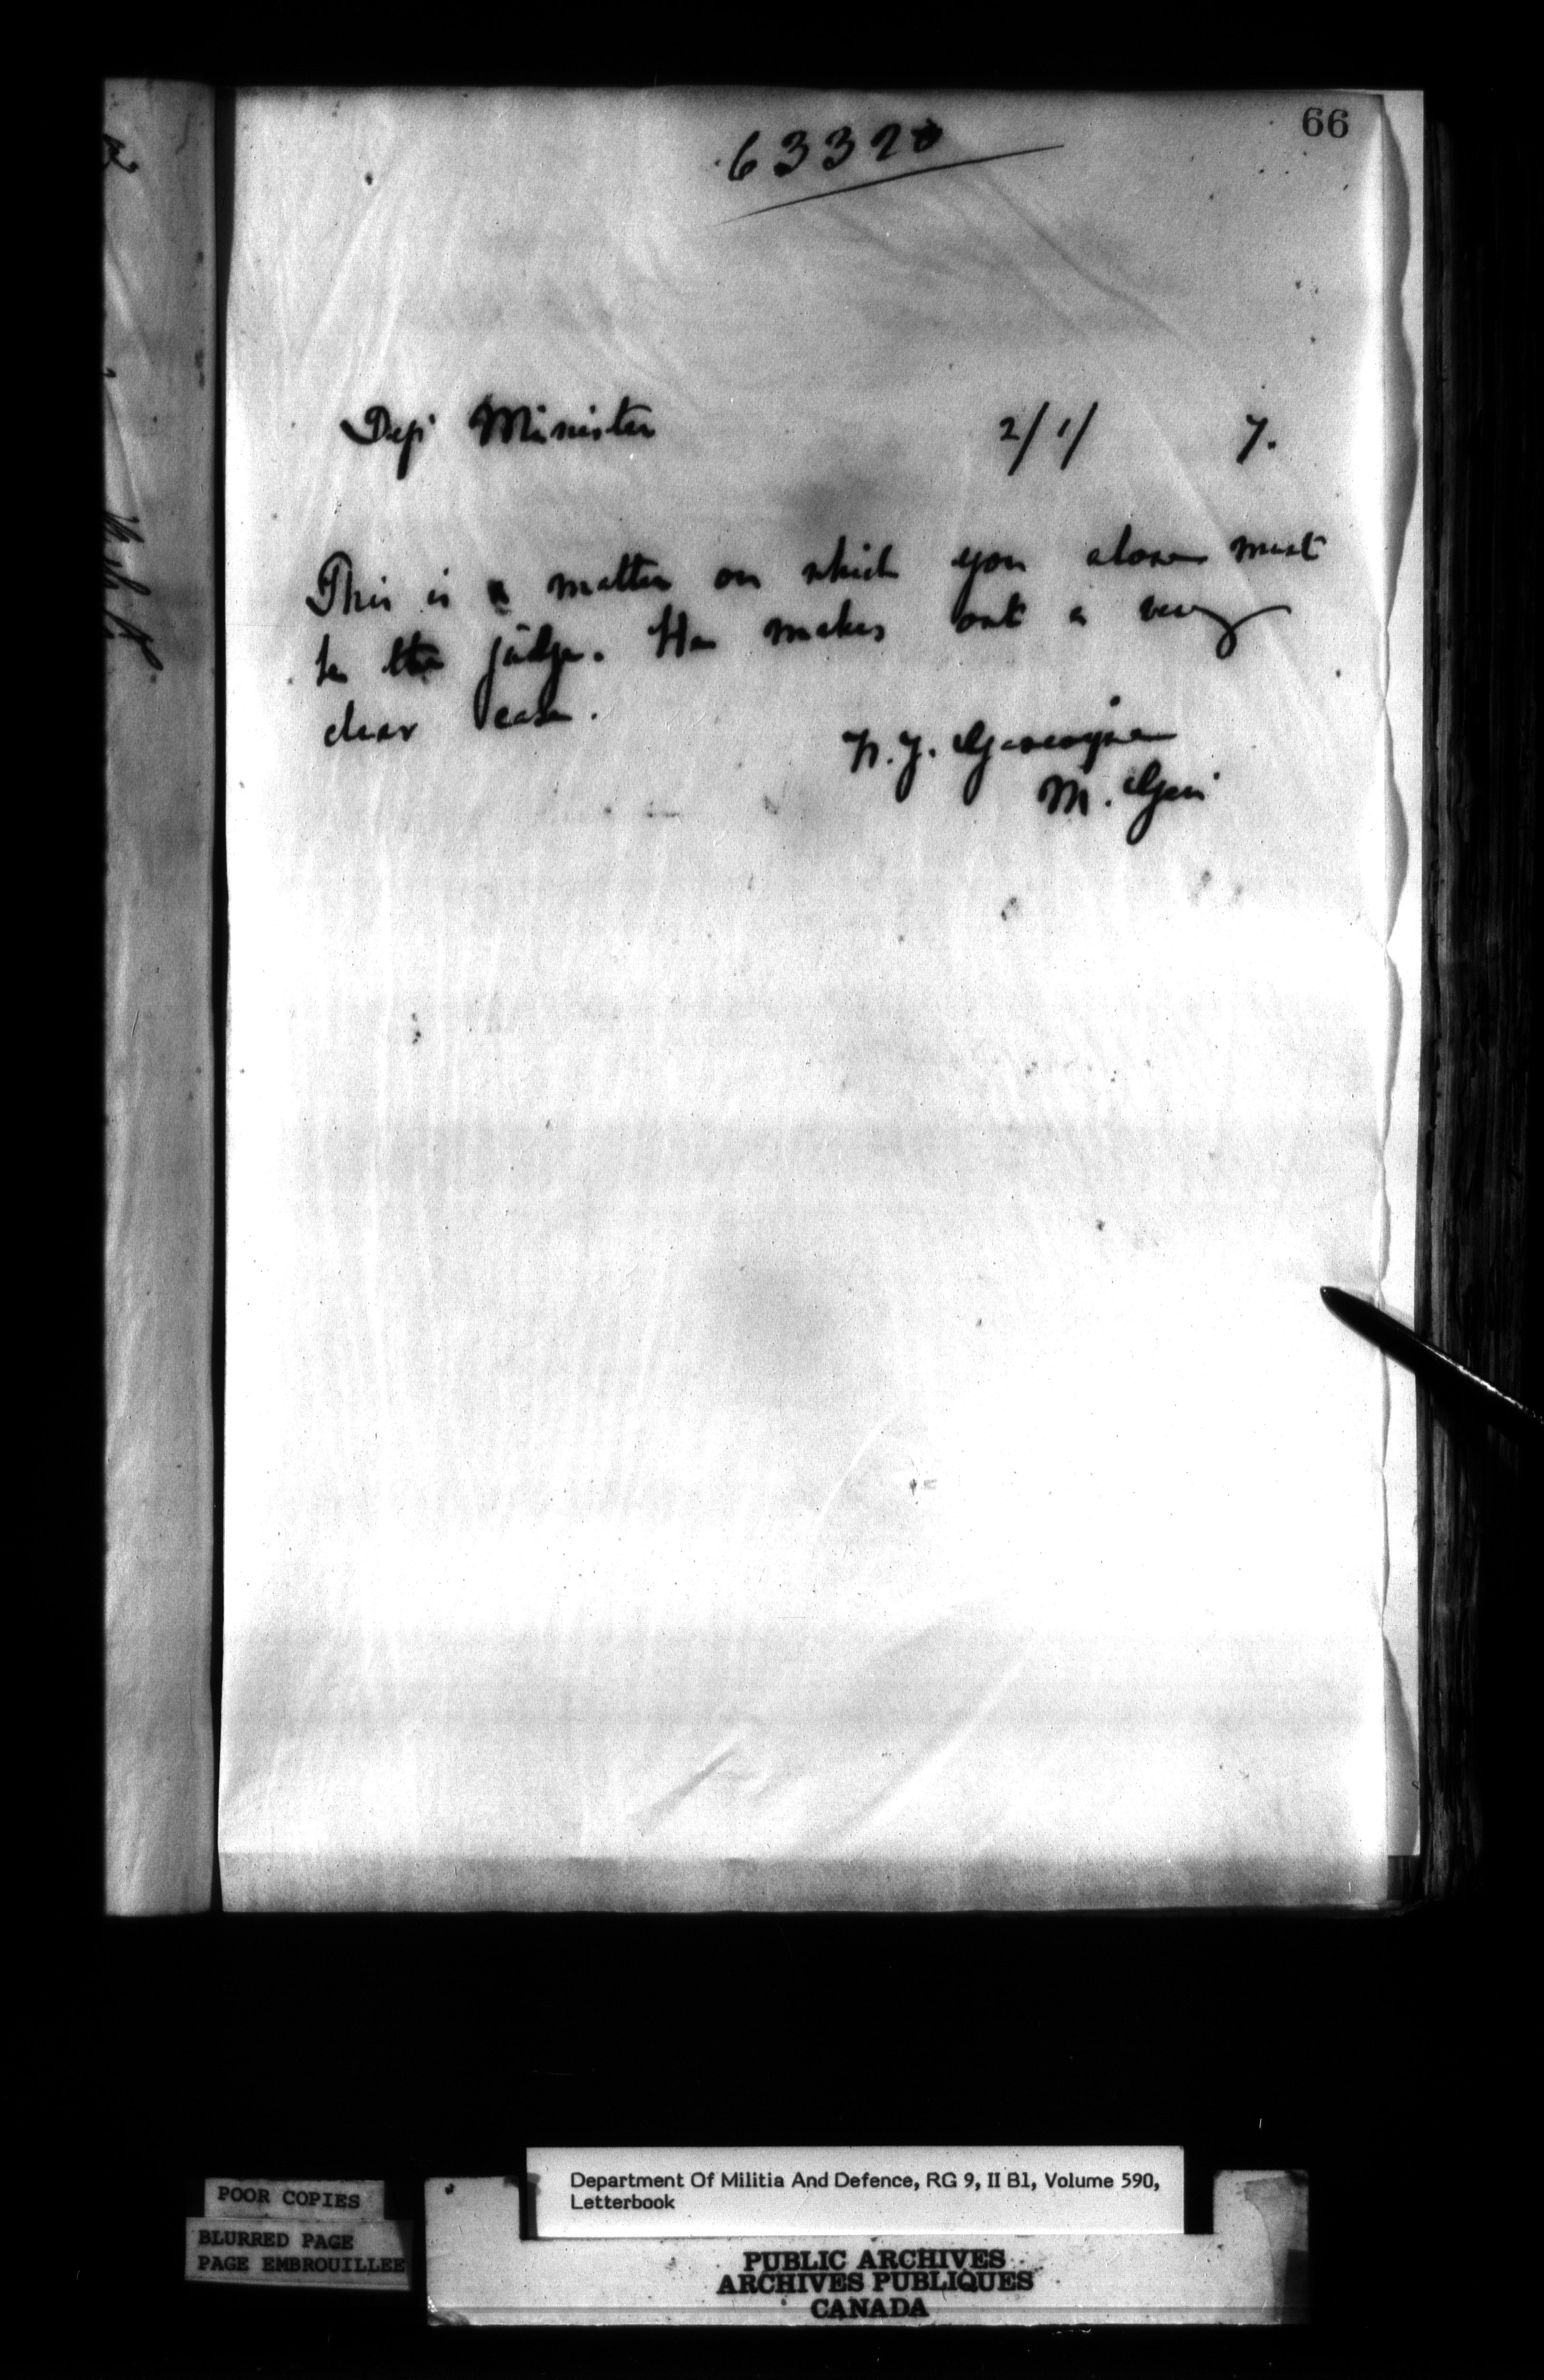 66
63320
Dep Minister 2/1/ 7.
This is a matter on which you alone must
be the judge. He makes out a very
clear case.
W. J. Gascoigne
M. Gen
POOR COPIES
BLURRED PAGE
PAGE EMBROUILLEE
Department Of Militia And Defence, RG 9, II B1, Volume 590,
Letterbook
PUBLIC ARCHIVES
ARCHIVES PUBLIQUES
CANADA